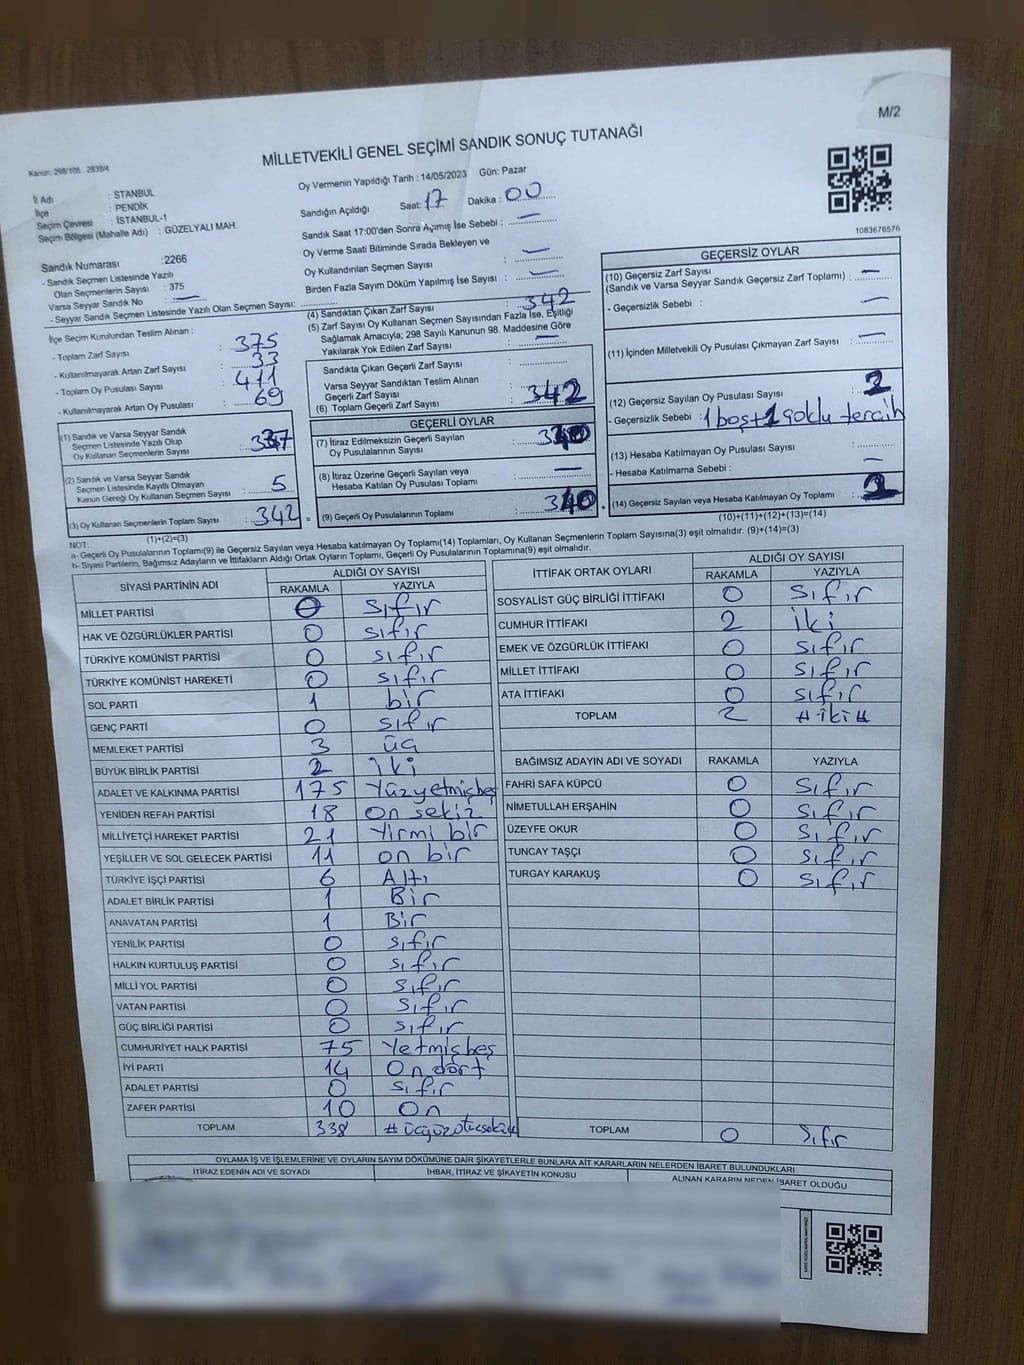 M/2
Kanun: 298/105 , 2839/4
MİLLETVEKİLİ GENEL SEÇİMİ SANDIK SONUÇ TUTANAĞI
İl Adı : STANBUL
İlçe : PENDİK
Seçim Çevresi : İSTANBUL-1
Seçim Bölgesi (Mahalle Adı) : GÜZELYALI MAH.
Sandık Numarası :2266
- Sandık Seçmen Listesinde Yazılı
Olan Seçmenlerin Sayısı : 375
Varsa Seyyar Sandık No : —
- Seyyar Sandık Seçmen Listesinde Yazılı Olan Seçmen Sayısı:
Oy Vermenin Yapıldığı Tarih : 14/05/2023 Gün: Pazar
Sandığın Açıldığı Saat: 17 Dakika : 00
Sandık Saat 17:00'den Sonra Açılmış İse Sebebi : —
Oy Verme Saati Bitiminde Sırada Bekleyen ve
Oy Kullandırılan Seçmen Sayısı : —
Birden Fazla Sayım Döküm Yapılmış İse Sayısı : —
1083676576
İlçe Seçim Kurulundan Teslim Alınan :
- Toplam Zarf Sayısı : 375
- Kullanılmayarak Artan Zarf Sayısı : 33
- Toplam Oy Pusulası Sayısı : 411
- Kullanılmayarak Artan Oy Pusulası : 69
(1) Sandık ve Varsa Seyyar Sandık
Seçmen Listesinde Yazılı Olup
Oy Kullanan Seçmenlerin Sayısı : 337
(2) Sandık ve Varsa Seyyar Sandık
Seçmen Listesinde Kayıtlı Olmayan
Kanun Gereği Oy Kullanan Seçmen Sayısı : 5
(3) Oy Kullanan Seçmenlerin Toplam Sayısı : 342
(1)+(2)=(3)
(4) Sandıktan Çıkan Zarf Sayısı : 342
(5) Zarf Sayısı Oy Kullanan Seçmen Sayısından Fazla İse, Eşitliği
Sağlamak Amacıyla; 298 Sayılı Kanunun 98. Maddesine Göre
Yakılarak Yok Edilen Zarf Sayısı : —
Sandıkta Çıkan Geçerli Zarf Sayısı :
Varsa Seyyar Sandıktan Teslim Alınan
Geçerli Zarf Sayısı :
(6) Toplam Geçerli Zarf Sayısı : 342
GEÇERLİ OYLAR
(7) İtiraz Edilmeksizin Geçerli Sayılan
Oy Pusulalarının Sayısı : 340
(8) İtiraz Üzerine Geçerli Sayılan veya
Hesaba Katılan Oy Pusulası Toplamı : —
= (9) Geçerli Oy Pusulalarının Toplamı : 340
GEÇERSİZ OYLAR
(10) Geçersiz Zarf Sayısı
(Sandık ve Varsa Seyyar Sandık Geçersiz Zarf Toplamı) : —
- Geçersizlik Sebebi : —
(11) İçinden Milletvekili Oy Pusulası Çıkmayan Zarf Sayısı : —
(12) Geçersiz Sayılan Oy Pusulası Sayısı : 2
- Geçersizlik Sebebi : 1 boş+1 çoklu tercih
(13) Hesaba Katılmayan Oy Pusulası Sayısı :
- Hesaba Katılmama Sebebi : —
+ (14) Geçersiz Sayılan veya Hesaba Katılmayan Oy Toplamı : 2
(10)+(11)+(12)+(13)=(14)
NOT:
a- Geçerli Oy Pusulalarının Toplamı(9) ile Geçersiz Sayılan veya Hesaba katılmayan Oy Toplamı(14) Toplamları, Oy Kullanan Seçmenlerin Toplam Sayısına(3) eşit olmalıdır. (9)+(14)=(3)
b- Siyasi Partilerin, Bağımsız Adayların ve İttifakların Aldığı Ortak Oyların Toplamı, Geçerli Oy Pusulalarının Toplamına(9) eşit olmalıdır.
SİYASİ PARTİNİN ADI ALDIĞI OY SAYISI
RAKAMLA YAZIYLA
MİLLET PARTİSİ 0 sıfır
HAK VE ÖZGÜRLÜKLER PARTİSİ 0 sıfır
TÜRKİYE KOMÜNİST PARTİSİ 0 sıfır
TÜRKİYE KOMÜNİST HAREKETİ 0 sıfır
SOL PARTİ 1 bir
GENÇ PARTİ 0 sıfır
MEMLEKET PARTİSİ 3 üç
BÜYÜK BİRLİK PARTİSİ 2 iki
ADALET VE KALKINMA PARTİSİ 175 Yüzyetmişbeş
YENİDEN REFAH PARTİSİ 18 On sekiz
MİLLİYETÇİ HAREKET PARTİSİ 21 Yirmi bir
YEŞİLLER VE SOL GELECEK PARTİSİ 11 on bir
TÜRKİYE İŞÇİ PARTİSİ 6 Altı
ADALET BİRLİK PARTİSİ 1 Bir
ANAVATAN PARTİSİ 1 Bir
YENİLİK PARTİSİ 0 sıfır
HALKIN KURTULUŞ PARTİSİ 0 sıfır
MİLLİ YOL PARTİSİ 0 sıfır
VATAN PARTİSİ 0 sıfır
GÜÇ BİRLİĞİ PARTİSİ 0 sıfır
CUMHURİYET HALK PARTİSİ 75 Yetmişbeş
İYİ PARTİ 14 On dört
ADALET PARTİSİ 0 sıfır
ZAFER PARTİSİ 10 On
TOPLAM 338 #üçyüzotuzsekiz
İTTİFAK ORTAK OYLARI ALDIĞI OY SAYISI
RAKAMLA YAZIYLA
SOSYALİST GÜÇ BİRLİĞİ İTTİFAKI 0 sıfır
CUMHUR İTTİFAKI 2 iki
EMEK VE ÖZGÜRLÜK İTTİFAKI 0 sıfır
MİLLET İTTİFAKI 0 sıfır
ATA İTTİFAKI 0 sıfır
TOPLAM 2 #iki#
BAĞIMSIZ ADAYIN ADI VE SOYADI RAKAMLA YAZIYLA
FAHRİ SAFA KÜPCÜ 0 sıfır
NİMETULLAH ERŞAHİN 0 sıfır
ÜZEYFE OKUR 0 sıfır
TUNCAY TAŞÇI 0 sıfır
TURGAY KARAKUŞ 0 sıfır
TOPLAM 0 sıfır
OYLAMA İŞ VE İŞLEMLERİNE VE OYLARIN SAYIM DÖKÜMÜNE DAİR ŞİKAYETLERLE BUNLARA AİT KARARLARIN NELERDEN İBARET BULUNDUKLARI
İTİRAZ EDENİN ADI VE SOYADI İHBAR, İTİRAZ VE ŞİKAYETİN KONUSU ALINAN KARARIN NEDEN İBARET OLDUĞU